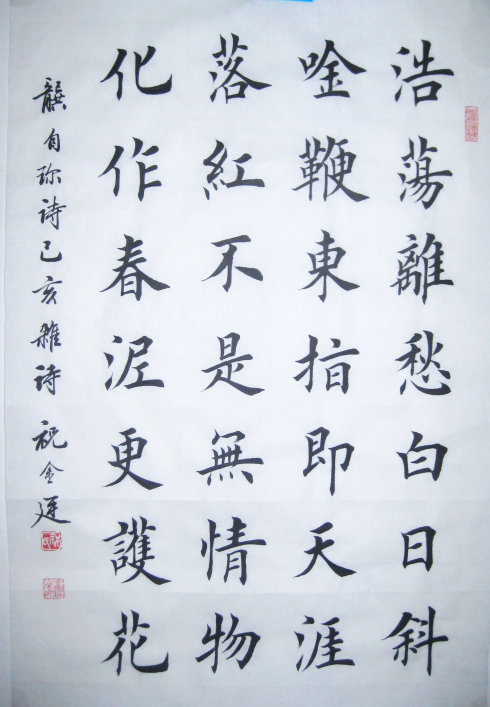 浩蕩離愁白日斜
唫鞭東指即天涯
落紅不是無情物
化作春泥更護花
龔自珍诗己亥雜诗 祝金廷